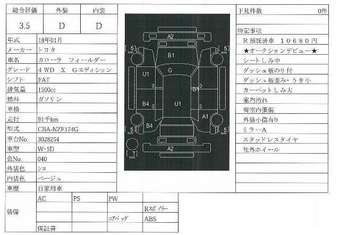 総合評価 外装 内装
3.5 D D
年式 18年01月
メーカー トヨタ
車名 カローラ フィールダー
グレード 4WD X Gエディション
シフト FAT
排気量 1500cc
燃料 ガソリン
車検
走行 91千km
型式 CBA-NZE124G
車台No 3028254
車型 W-5D
色No. 040
外装色 シロ
内装色 ベージュ
車歴 自家用車
装備 AC PS PW
Rスポイラー
エアバッグ ABS
保証書
A2
B1
G
U1
U1
A1
B4
A1
A2
下見件数 0件
特記事項
R預託済 10680円
★オークションデビュー★
シートしみ中
ダッシュ板のり付
ダッシュ板歪み・うき小
カーペットしみ大
室内汚れ
荷室内張傷
外装小傷有り
ミラーA
スタッドレスタイヤ
社外ホイール